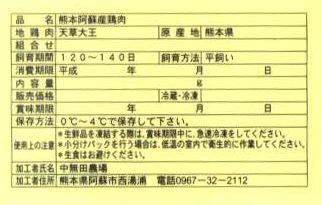 品名 熊本阿蘇産鶏肉
地鶏肉 天草大王 原産地 熊本県
組合せ
飼育期間 120~140日 飼育方法 平飼い
消費期限 平成 年 月 日
内容量 g
販売価格 冷蔵・冷凍
賞味期限 年 月 日
保存方法 0℃~4℃で保存して下さい。
使用上の注意 *生鮮品を凍結する際は、賞味期限中に、急速冷凍をしてください。
*小分けパックを行う場合は、低温の室内で衛生的に作業してください。
*生食はお避けください。
加工者氏名 中無田農場
加工者住所 熊本県阿蘇市西湯浦 電話0967-32-2112